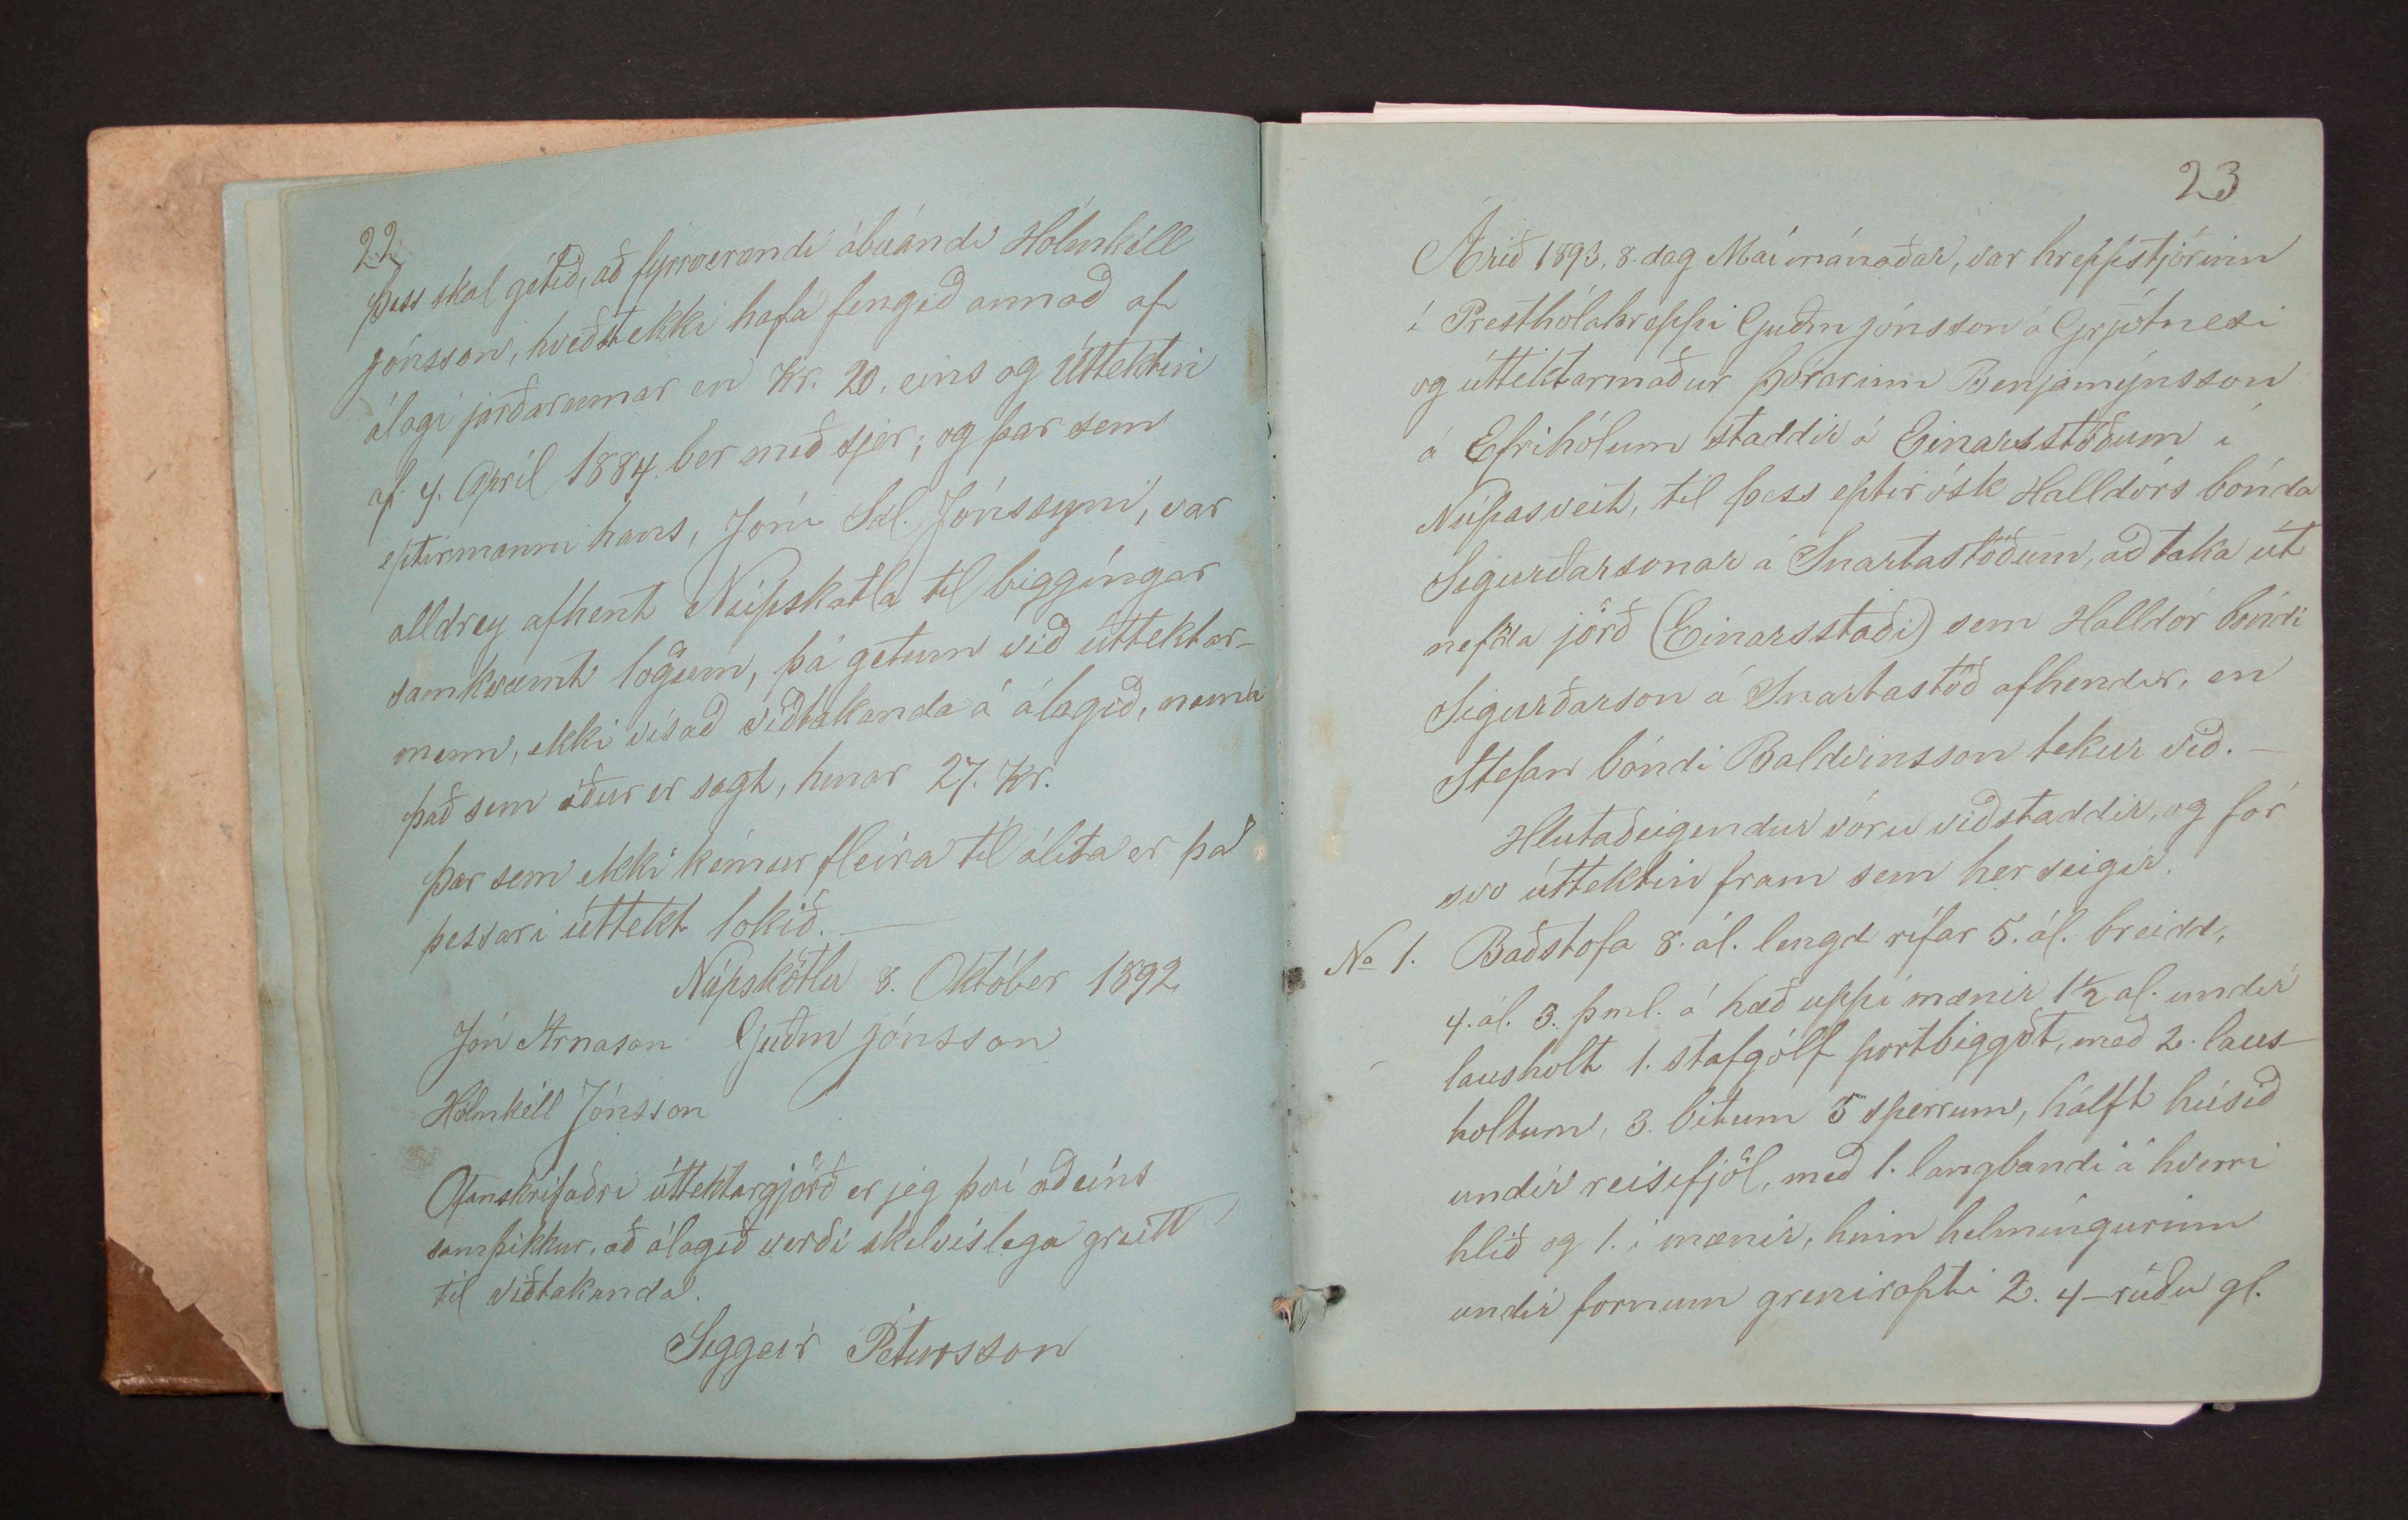 22
þess skal getið, að fyrrverandi ábúandi Hólmkéll
Jónsson, kveðst ekki hafa fengið annað af
álagi jarðarinnar en Kr. 20, eins og Úttektin
af 4. Apríl 1884 ber með sjer; og þar sem
eptirmanni hans, Jóni Sal. Jónssyni, var
alldrey afhent Núpskatla til biggíngar
samkvæmt lögum, þá getum við úttektar-
menn, ekki vísað viðtakanda á álagið, nema
það sem áður er sagt, hinar 27. Kr.
Þar sem ekki kémur fleira til álita er þá
þessari úttekt lokið. —
Núpskötlu 8. Október 1892
Jón Árnason Guðm Jónsson
Hólmkéll Jónsson
Ofanskrifaðri úttektargjörð er jeg því aðeins
samþikkur, að álagið verði skilvíslega greitt
til viðtakanda.
Siggeir Pétursson
23
Árið 1893, 8. dag Maí mánaðar, var hreppstjórinn
í Presthólahreppi Guðm Jónsson á Grjótnesi
og úttektarmaður Þórarinn Benjamýnsson
á Efrihólum staddir á Einarsstöðum í
Núpasveit, til þess eptir ósk Halldórs bónda
Sigurðarsonar á Snartastöðum, að taka út
nefnda jörð (Einarsstaði) sem Halldór bóndi
Sigurðarson á Snartastöð afhendir, en
Stefan bóndi Baldvinsson tekur við. —
Hlutaðeigendur vóru viðstaddir, og fór
svo úttektin fram sem her seigir.
No 1. Baðstofa 8. ál. lengd rífar 5. ál. breidd,
4. ál. 3. þml. á hæð uppí mænir 1½ al. undir
lausholt 1. stafgólf portbiggðt, með 2. laus-
holtum, 3. bitum 5 sperrum, hálft húsið
undir reisifjöl, með 1. langbandi á hverri
hlið og 1. í mænir, hinn helmíngurinn
undir fornum grenirapti 2. 4-rúðu gl.